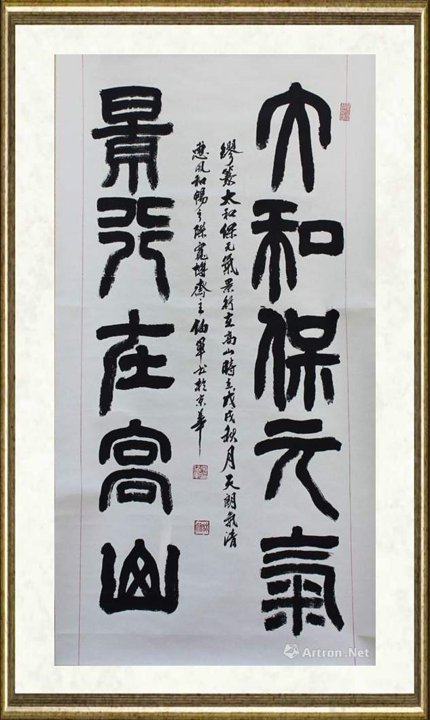 大和保元氣
繆篆太和保元氣景行在高山時在戊戌秋月天朗氣清
惠風和暢之際齋主书於京華
景行在高山
Artron.Net